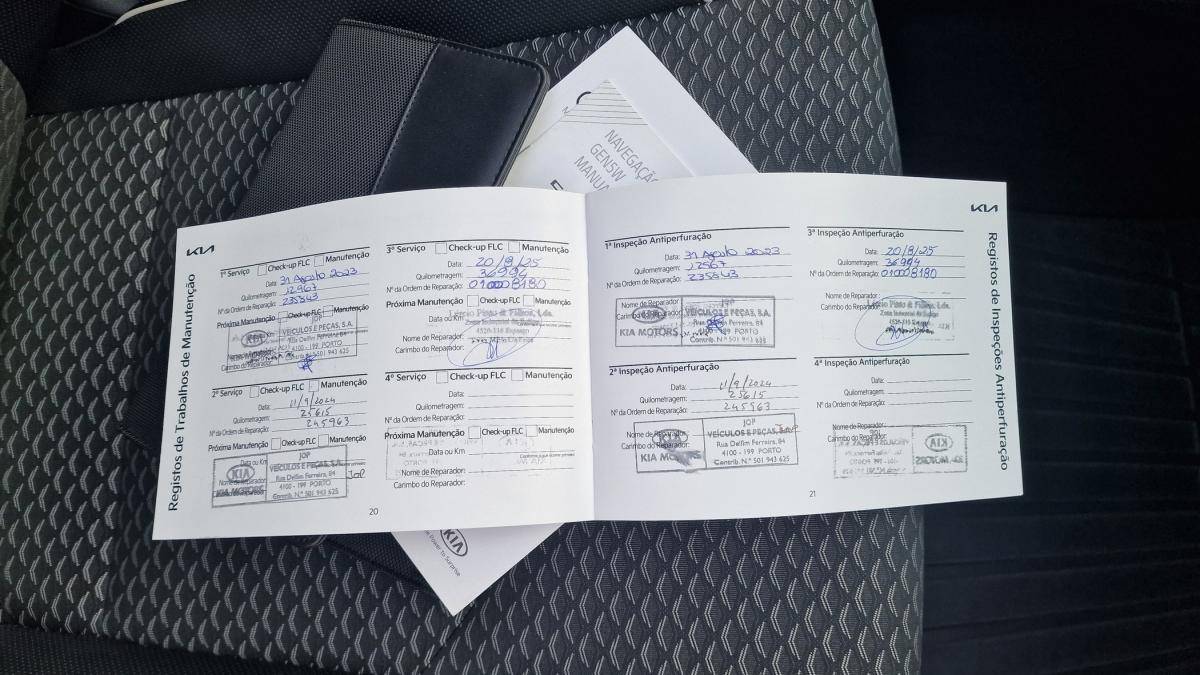 NAVEGAÇÃO
GEN5W
MANUA
KIA
Registos de Trabalhos de Manutenção
1º Serviço Check-up FLC Manutenção
Data: 31 Agosto 2023
Quilometragem: 12967
Nº da Ordem de Reparação: 235343
Próxima Manutenção Check-up FLC Manutenção
JOP
VEÍCULOS E PEÇAS, S.A.
Rua Delfim Ferreira, 84
4100 - 199 PORTO
Contrib. N.º 501 943 625
KIA MOTORS
Carimbo do Reparador:
2º Serviço Check-up FLC Manutenção
Data: 11/9/2024
Quilometragem: 25615
Nº da Ordem de Reparação: 245963
Próxima Manutenção Check-up FLC Manutenção
Data ou Km
Nome de Reparador:
KIA MOTORS
JOP
VEÍCULOS E PEÇAS, S.A.
Rua Delfim Ferreira, 84
4100 - 199 PORTO
Contrib. N.º 501 943 625
JOP
3º Serviço Check-up FLC Manutenção
Data: 20/8/25
Quilometragem: 36994
Nº da Ordem de Reparação: 010008180
Próxima Manutenção Check-up FLC Manutenção
Data ou Km
Nome de Reparador:
Carimbo do Reparador:
4º Serviço Check-up FLC Manutenção
Data:
Quilometragem:
Nº da Ordem de Reparação:
Próxima Manutenção Check-up FLC Manutenção
Data ou Km
Nome de Reparador:
Carimbo do Reparador:
20
KIA
Registos de Inspeções Antiperfuração
1ª Inspeção Antiperfuração
Data: 31 Agosto 2023
Quilometragem: 12967
Nº da Ordem de Reparação: 235343
Nome de Reparador:
Carimbo do Reparador:
KIA MOTORS
JOP
VEÍCULOS E PEÇAS, S.A.
Rua Delfim Ferreira, 84
4100 - 199 PORTO
Contrib. N.º 501 943 625
2ª Inspeção Antiperfuração
Data: 11/9/2024
Quilometragem: 25615
Nº da Ordem de Reparação: 245963
Nome de Reparador:
Carimbo do Reparador:
KIA MOTORS
JOP
VEÍCULOS E PEÇAS, S.A.
Rua Delfim Ferreira, 84
4100 - 199 PORTO
Contrib. N.º 501 943 625
3ª Inspeção Antiperfuração
Data: 20/8/25
Quilometragem: 36994
Nº da Ordem de Reparação: 010008180
Nome de Reparador:
Carimbo do Reparador:
4ª Inspeção Antiperfuração
Data:
Quilometragem:
Nº da Ordem de Reparação:
Nome de Reparador:
Carimbo do Reparador:
21
KIA
Power to Surprise